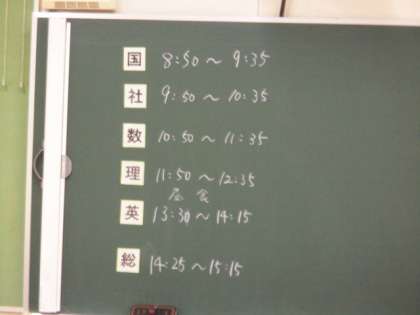 国 8:50～9:35
社 9:50～10:35
数 10:50～11:35
理 11:50～12:35
昼食
英 13:30～14:15
総 14:25～15:15